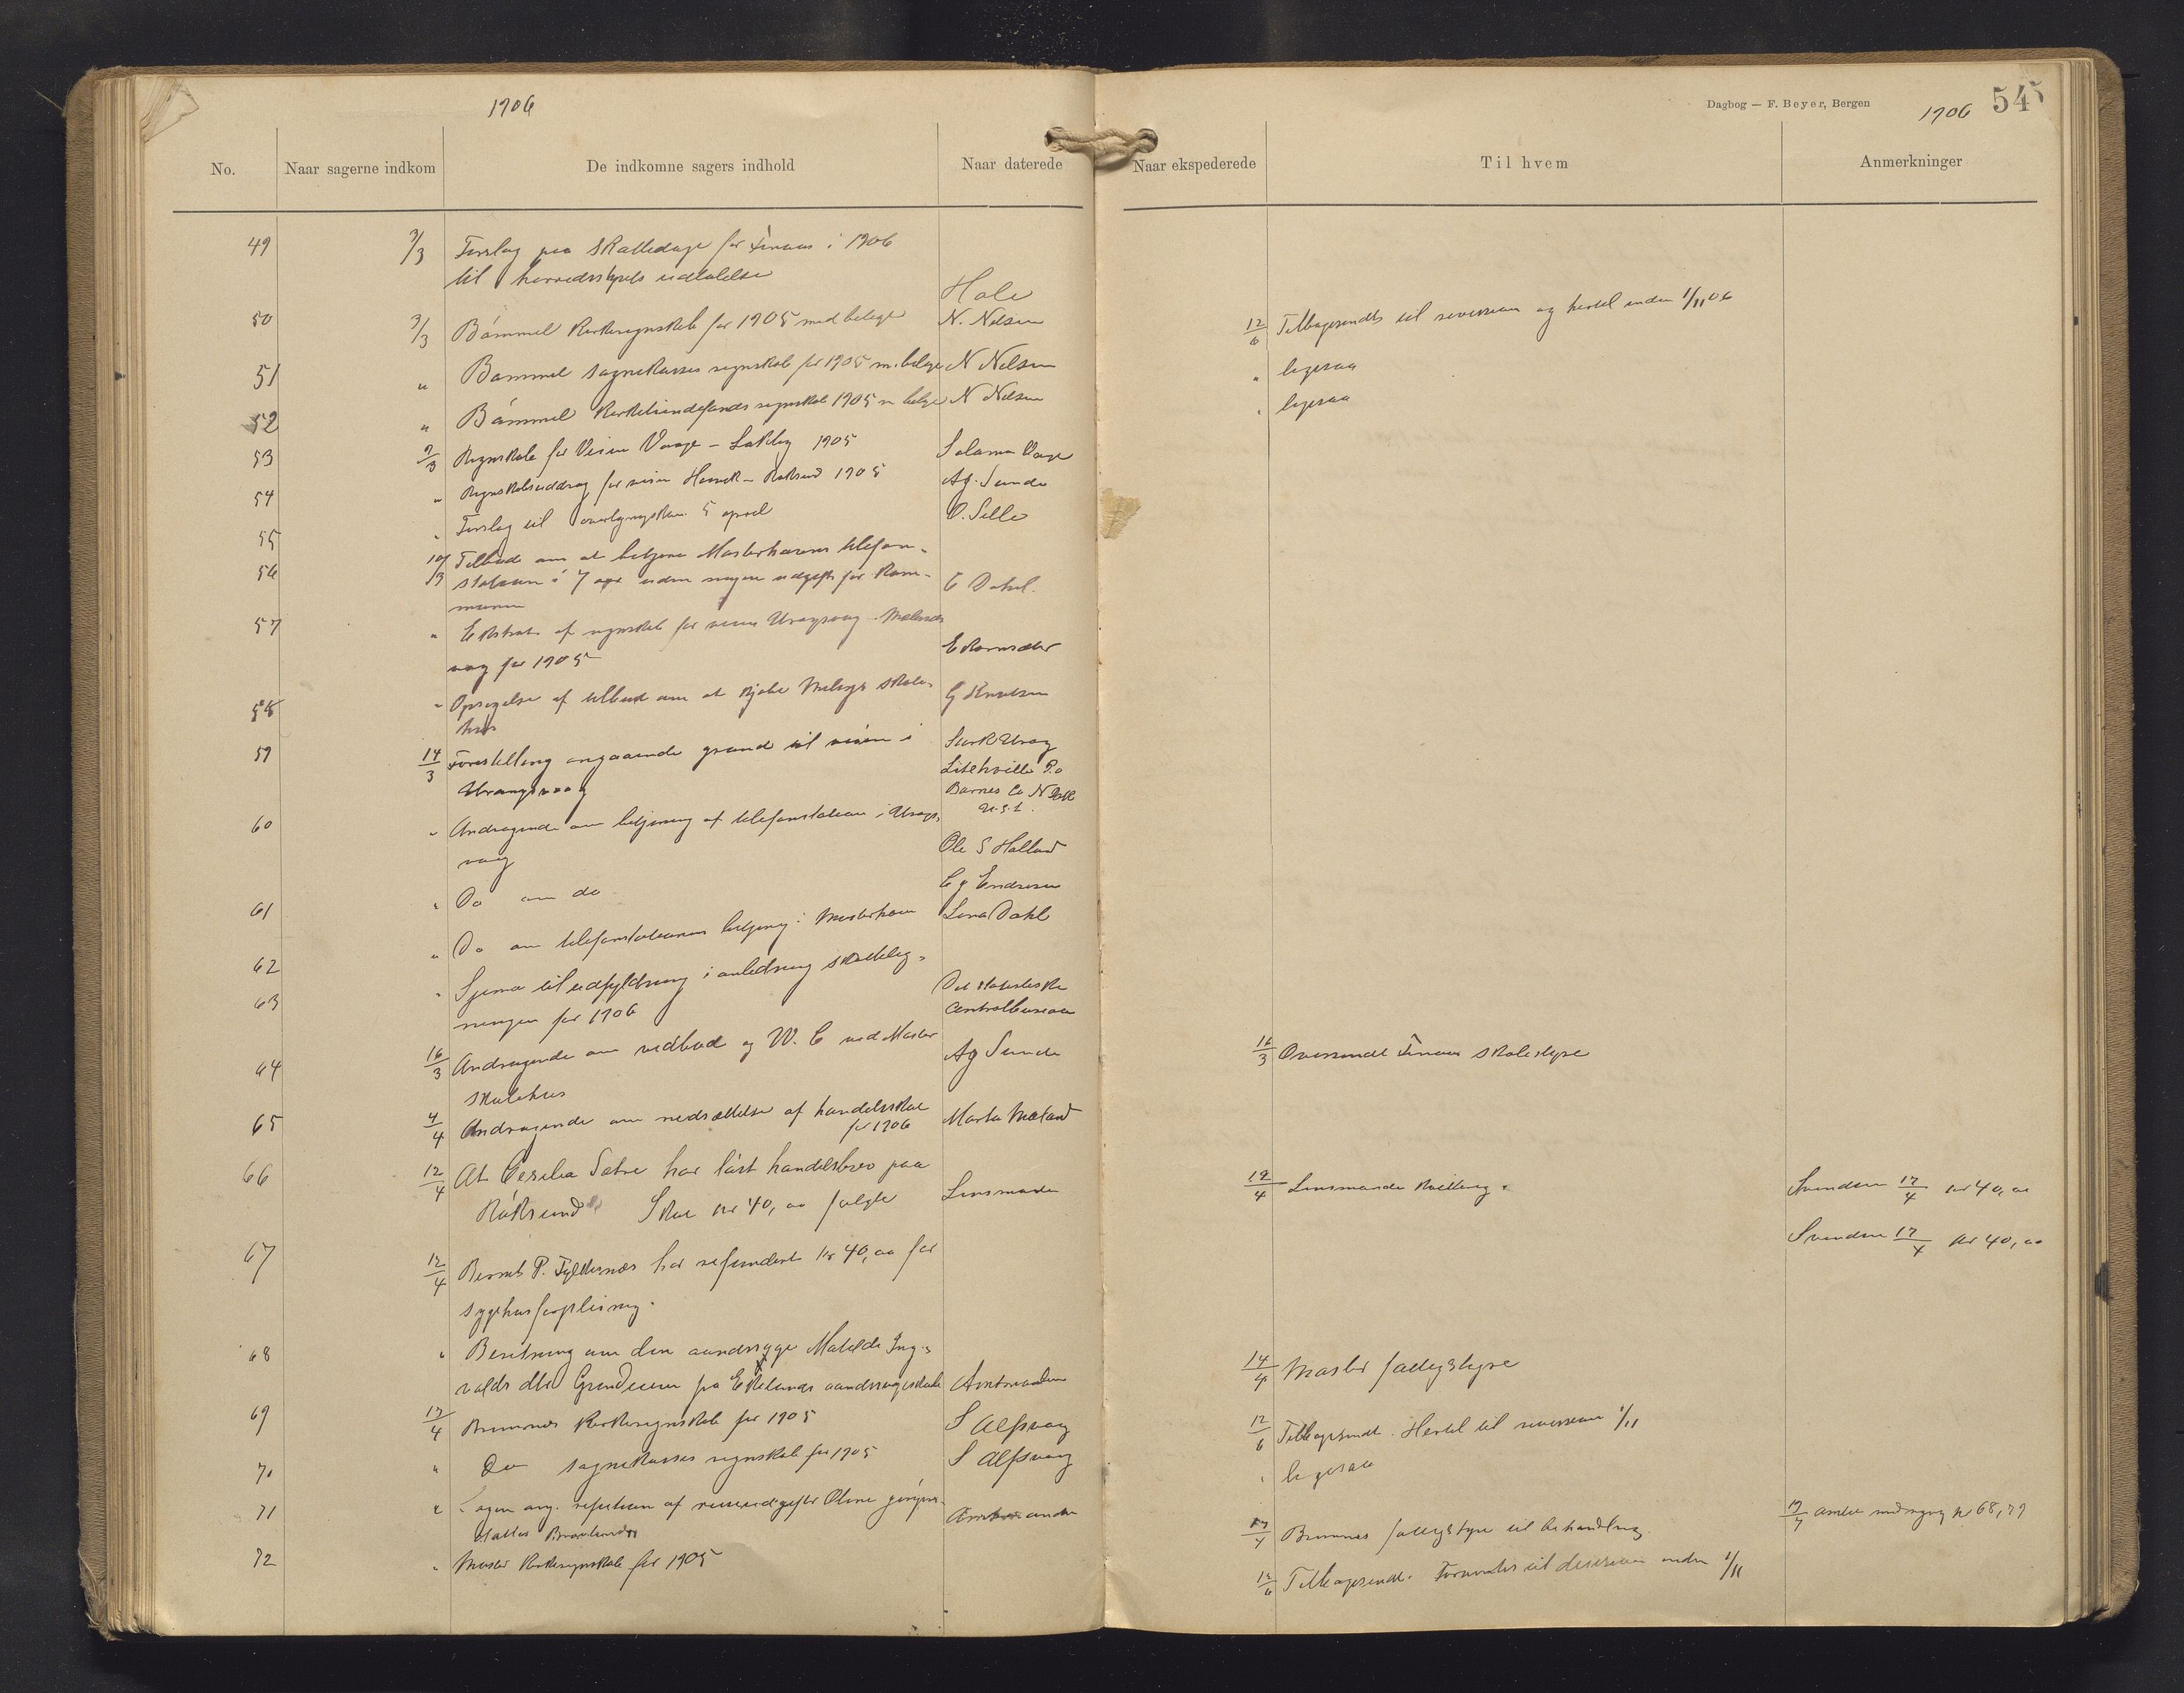 1906
No.
Naar sagerne indkom
De indkomne sagers indhold
Naar daterede
49 3/3 Forslag paa Skattedage for Finaas i 1906
til herredsstyrets udtalelse
Hole
50 3/3 Bömmel Kirkeregnskab for 1905 med belage N. Nilsen
51 " Bömmel sognekasses regnskab for 1905 m. belage N Nilsen
52 " Bömmel Kirkelandsfonds regnskab 1905 m belage N Nilsen
53 9/3 Regnskab for Veien Vaage – Lakley 1905 Salamon Vaage
54 " Regnskabsuddrag for veien Hovik – Røksund 1905 Ag. Sunde
55 " Forslag til overligningskom. 5 april O. Sille
56 10/3 Tilbud om at betjene Mosterhavns telefon-
station i 7 aar uden nogen udgift for Kom-
munen
E Dahl.
57 " Ekstrakt af regnskab for veien Urangsvaag –
vaag for 1905
58 " Opsigelse af tilbud om at kjöbe Melings skole-
hus
G Knutsen
59 14/3 Forestilling angaaende grund til veien i
Urangsvaag
Litchville P.o
Barnes Co N Dak
U.S.A.
60 " Andragende om betjening af telefonstation i Urangs-
vaag
Ole S Halland
61 " Do om do
C g Endresen
62 " Do om telefonstationens betjening i Mosterhavn Lina Dahl
63 " Sjema til udfyldning i anledning skattelig-
ningen for 1906
Det statistiske
Centralbureau
64 16/3 Andragende om vedbod og W. C ved Moster
skolehus
Ag Sunde
65 4/4 Andragende om nedsættelse af handelsskat
for 1906
Marta Mæland
66 12/4 At Cesilia Sætre har löst handelsbrev paa
Röksund Skat kr 40,00 fölger
Lensmanden
67 12/4 Bernt P. Fylkesnes har refundert kr 40,00 for
sygehusforpleining.
68 " Beretning om den sindssyge Matilde Ing-
valds dtr Grindheim fra Eikelunds sindssygeasyl Amtmanden
69 17/4 Bremnes Kirkeregnskab for 1905 S Alfsvaag
70 " Do sognekasses regnskab for 1905 S Alfsvaag
71 " Sagen ang. refusion af reiseudgifter Oline
Amtmanden
72 " Moster Kirkeregnskab for 1905
Dagbog — F. Beyer, Bergen
1906
545
Naar ekspederede
Til hvem
Anmerkninger
12/6 Tilbagesendt til revision og hertil inden 1/11 06
" ligesaa
" ligesaa
16/3 Oversendt Finaas skolestyre
12/4 Lensmanden
Svendsen 17/4 kr 40,00
Svendsen 17/4 kr 40,00
14/4 Moster fattigstyre
12/6 Tilbagesendt. Hertil til revision 1/11
" ligesaa
17/4 Bremnes fattigstyre til behandling.
17/7 kr 68,79
12/6 Tilbagesendt. Forventes til decision inden 1/11